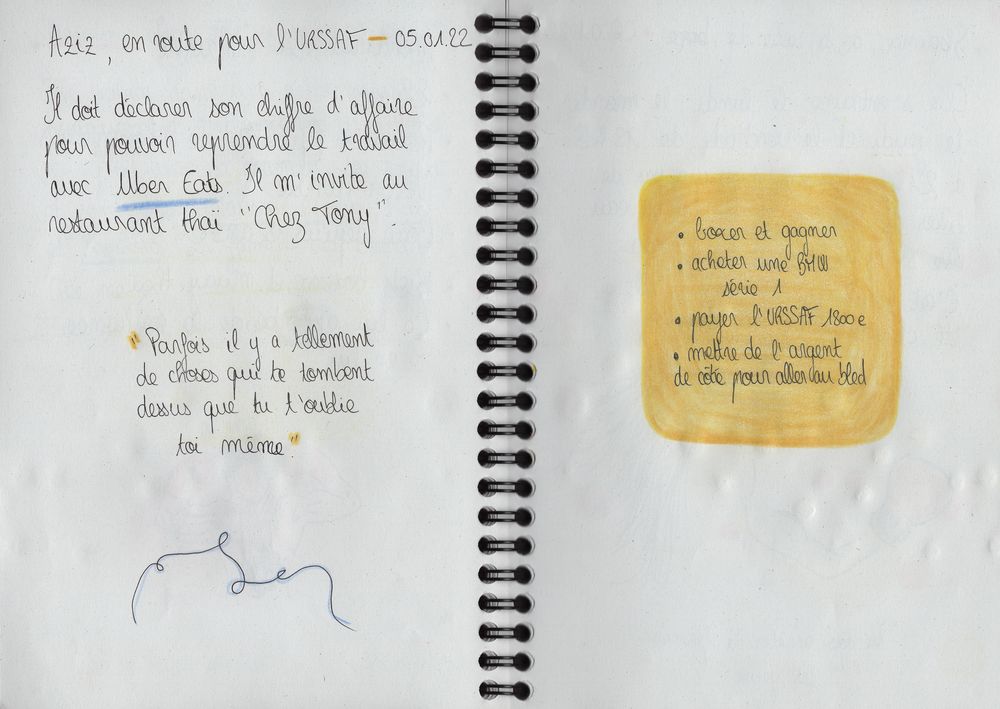 Aziz, en route pour l'URSSAF — 05.01.22
Il doit déclarer son chiffre d'affaire
pour pouvoir reprendre le travail
avec Uber Eats. Il m'invite au
restaurant thaï "Chez Tony".
"Parfois il y a tellement
de choses qui te tombent
dessus que tu t'oublie
toi même"
• boxer et gagner
• acheter une BMW
série 1
• payer l'URSSAF 1800e
• mettre de l'argent
de côté pour aller au bled